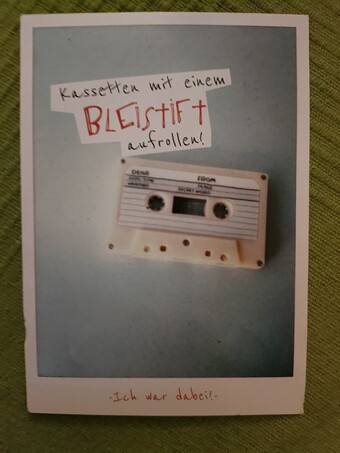 Kassetten mit einem
BLEISTIFT
aufrollen!
-Ich war dabei!-